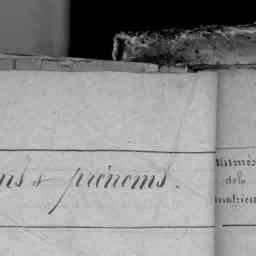 ns & prénoms.
Numéro
de la
matricule